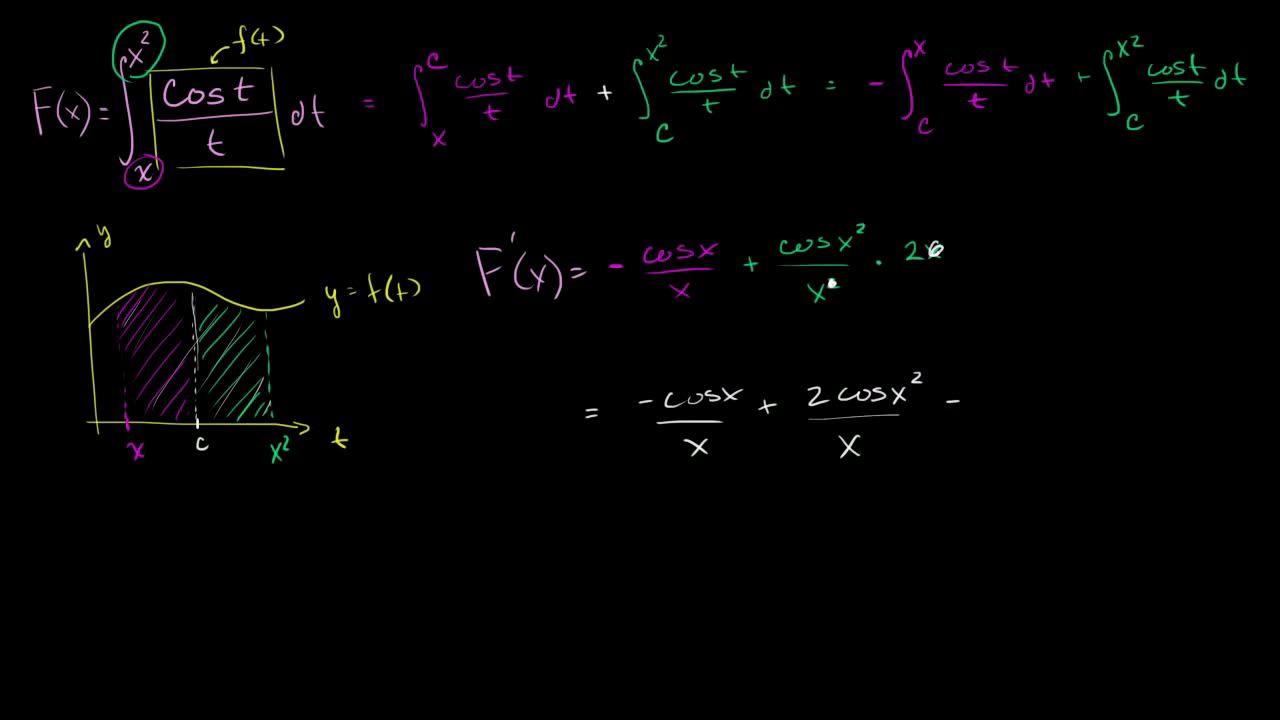 F(x) = ∫ₓ^x² cos t / t dt = ∫ₓ^c cos t / t dt + ∫_c^x² cos t / t dt = - ∫_c^x cos t / t dt + ∫_c^x² cos t / t dt
f(t)
y
y = f(t)
x c x² t
F'(x) = - cos x / x + cos x² / x² · 2x
= -cos x / x + 2 cos x² / x -